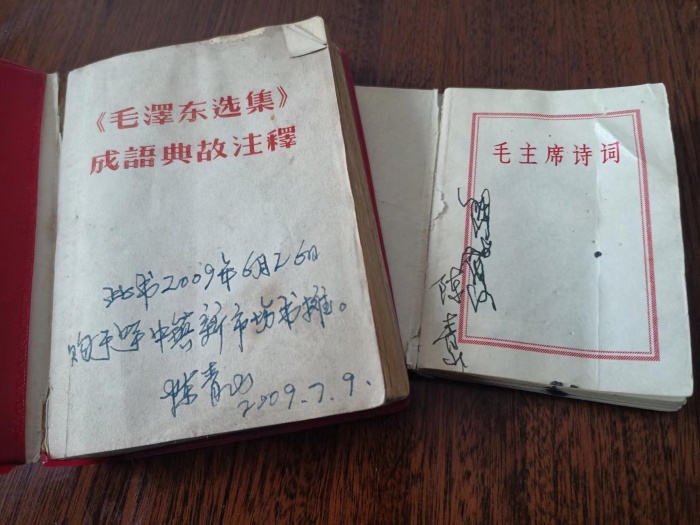 《毛澤东选集》
成語典故注釋
此书2009年6月26日
购于坪中镇新市场书摊。
陈青山
2009.7.9.
毛主席诗词
陈青山